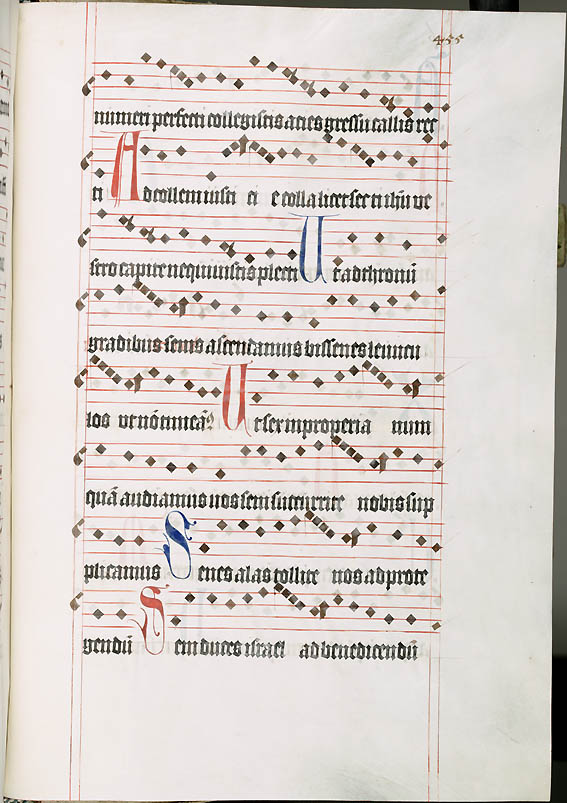 455
numeri perfecti collegistis acies gressu callis rec
ti Ad collem iusti ci e colla licet secti ihū ve
stro capite nequiuistis plecti Ut ad thronū
gradibus senis ascendamus bissenos leuncu
los ut nō timeā⁹ Ut ser improperia num
quā audiamus uos sem succurrite nobis sup
plicamus Senes alas tollite nos ad prote
gendū Sem duces israel ad benedicendū